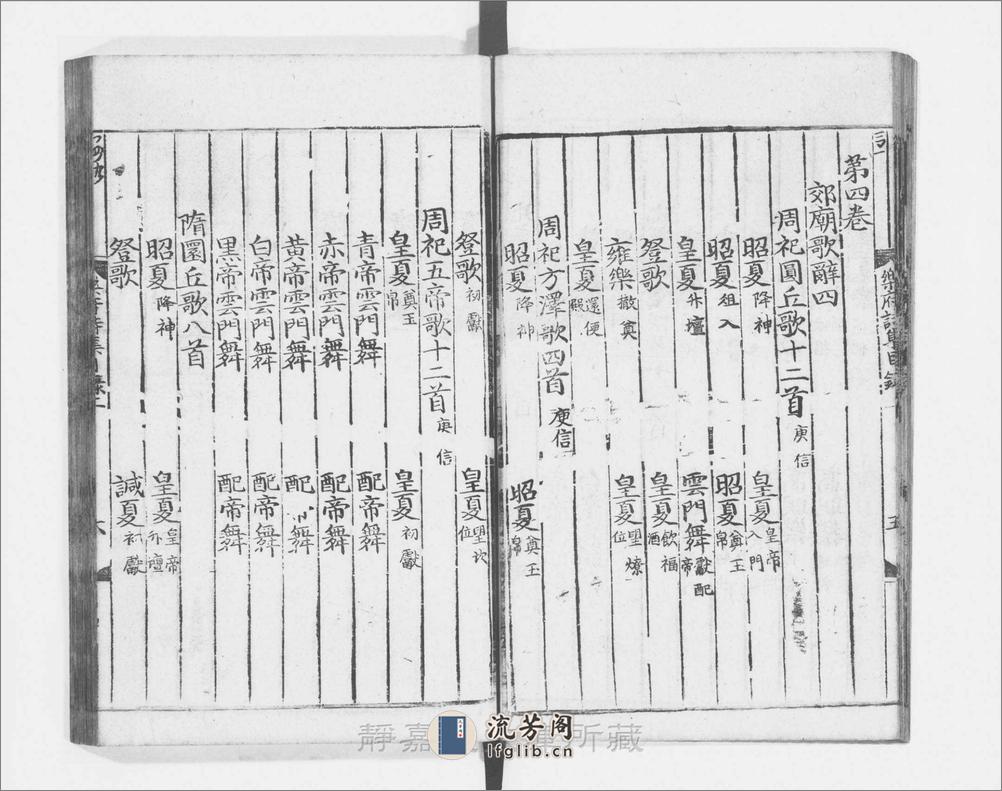 第四卷
郊廟歌辭四
周祀圓丘歌十二首 庾信
昭夏 降神 皇夏 皇帝入門
昭夏 俎入 昭夏 奠玉帛
皇夏 升壇 雲門舞 獻配帝
登歌 皇夏 飲福酒
雍樂 撤奠 皇夏 望燎位
皇夏 還便殿
周祀方澤歌四首 庾信
昭夏 降神 昭夏 奠玉帛
登歌 初獻 皇夏 望坎位
周祀五帝歌十二首 庾信
皇夏 奠玉帛 皇夏 初獻
青帝雲門舞 配帝舞
赤帝雲門舞 配帝舞
黃帝雲門舞 配帝舞
白帝雲門舞 配帝舞
黑帝雲門舞 配帝舞
隋圜丘歌八首
昭夏 降神 皇夏 皇帝升壇
登歌 諴夏 初獻
樂府詩集目錄
五
六
靜嘉
所藏
流芳阁
lfglib.cn